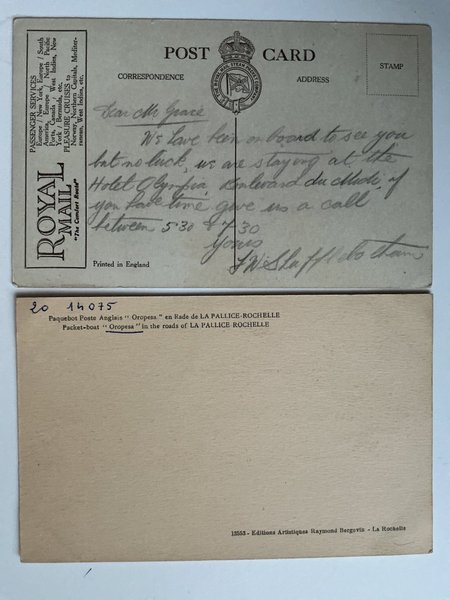 POST CARD
CORRESPONDENCE
ADDRESS
STAMP
PASSENGER SERVICES
Europe / New York, Europe / South
America, Europe / North Pacific
Ports, Canada / West Indies, New
York / Bermuda, etc.
PLEASURE CRUISES to
Norway, Northern Capitals, Mediter-
ranean, West Indies, etc.
ROYAL
MAIL
"The Comfort Route"
Dear Mr Grace
We have been on board to see you
but no luck, we are staying at the
Hotel Olympia, Boulevard du Midi, if
you have time give us a call
between 5.30 & 7.30
Yours
Printed in England
20 14075
Paquebot Poste Anglais "Oropesa" en Rade de LA PALLICE-ROCHELLE
Packet-boat "Oropesa" in the roads of LA PALLICE-ROCHELLE
13553 - Editions Artistiques Raymond Bergevin - La Rochelle